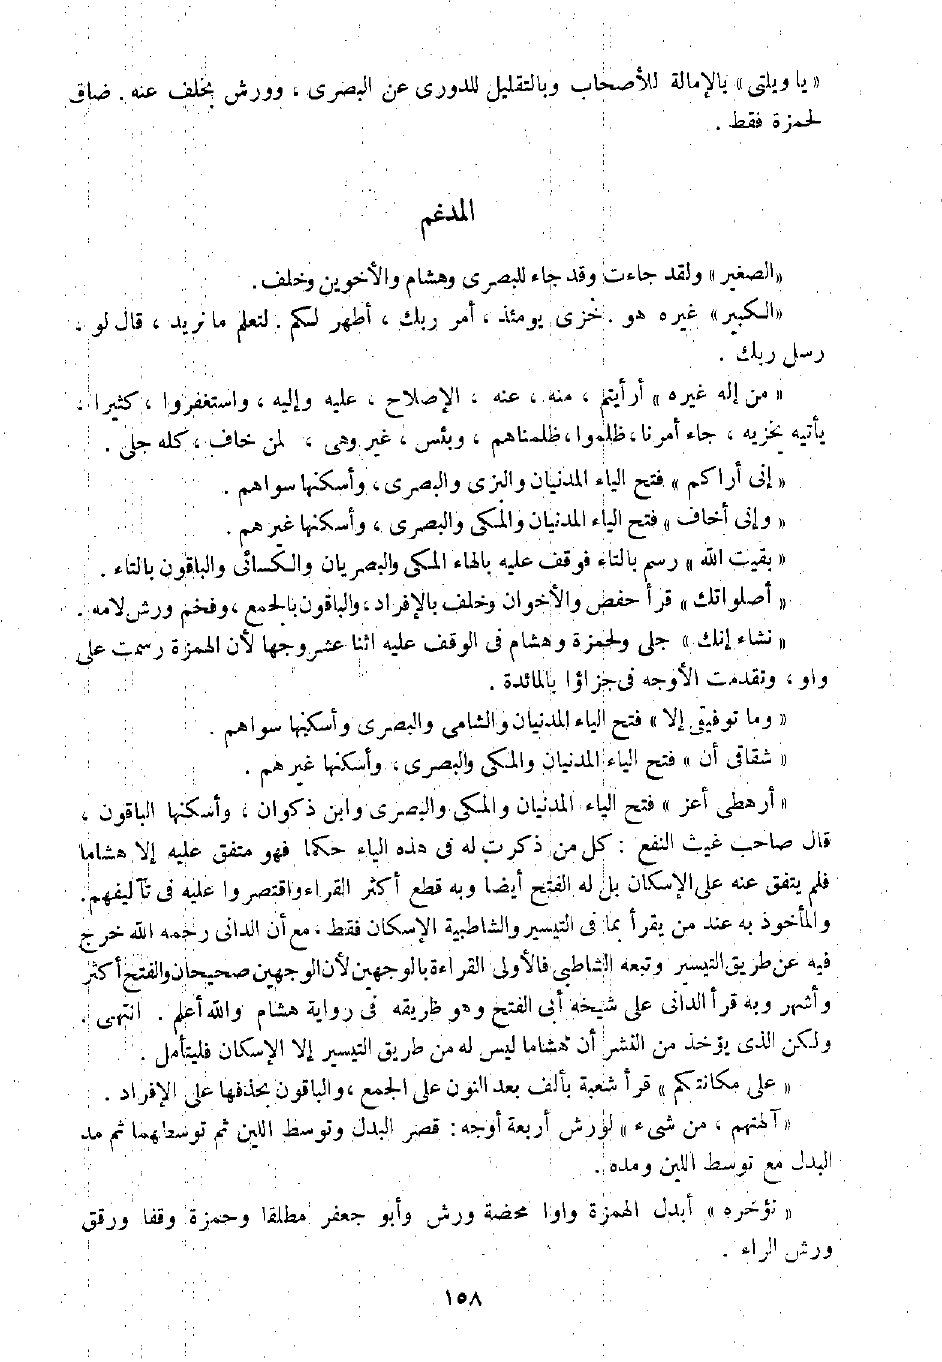 «يا ويلتى» بالإمالة للأصحاب وبالتقليل للدورى عن البصرى ، وورش بخلف عنه . ضاق
لحمزة فقط .
المدغم
«الصغير» ولقد جاءت وقد جاء للبصرى وهشام والأخوين وخلف .
«الكبير» غيره هو . خزى يومئذ ، أمر ربك ، أطهر لكم . لتعلم ما نريد ، قال لو ،
رسل ربك .
« من إله غيره » أرأيتم ، منه ، عنه ، الإصلاح ، عليه وإليه ، واستغفروا ، كثيرا ،
يأتيه يخزيه ، جاء أمرنا ، ظلموا ، ظلمناهم ، وبئس ، غير وهى ، لمن خاف ، كله جلى .
« إنى أراكم » فتح الياء المدنيان والبزى والبصرى ، وأسكنها سواهم .
« وإنى أخاف » فتح الياء المدنيان والمكى والبصرى ، وأسكنها غيرهم .
« بقيت الله » رسم بالتاء فوقف عليه بالهاء المكى والبصريان والكسائى والباقون بالتاء .
« أصلواتك » قرأ حفص والأخوان وخلف بالإفراد ، والباقون بالجمع ، وفخم ورش لامه .
« نشاء إنك » جلى ولحمزة وهشام فى الوقف عليه اثنا عشر وجها لأن الهمزة رسمت على
واو ، وتقدمت الأوجه فى جزاؤا بالمائدة .
« وما توفيقى إلا » فتح الياء المدنيان والشامى والبصرى وأسكنها سواهم .
« شقاقى أن » فتح الياء المدنيان والمكى والبصرى ، وأسكنها غيرهم .
« أرهطى أعز » فتح الياء المدنيان والمكى والبصرى وابن ذكوان ، وأسكنها الباقون ،
قال صاحب غيث النفع : كل من ذكرت له فى هذه الياء حكما فهو متفق عليه إلا هشاما
فلم يتفق عنه على الإسكان بل له الفتح أيضا وبه قطع أكثر القراء واقتصروا عليه فى تآليفهم .
والمأخوذ به عند من يقرأ بما فى التيسير والشاطبية الإسكان فقط ، مع أن الدانى رحمه الله خرج
فيه عن طريق التيسير وتبعه الشاطبى فالأولى القراءة بالوجهين لأن الوجهين صحيحان والفتح أكثر
وأشهر وبه قرأ الدانى على شيخه أبى الفتح وهو طريقه فى رواية هشام والله أعلم . انتهى .
ولكن الذى يؤخذ من النشر أن هشاما ليس له من طريق التيسير إلا الإسكان فليتأمل .
« على مكانتكم » قرأ شعبة بألف بعد النون على الجمع ، والباقون بحذفها على الإفراد .
« آلهتهم ، من شىء » لورش أربعة أوجه : قصر البدل وتوسط اللين ثم توسطهما ثم مد
البدل مع توسط اللين ومده .
« نؤخره » أبدل الهمزة واوا محضة ورش وأبو جعفر مطلقا وحمزة وقفا ورقق
ورش الراء .
١٥٨